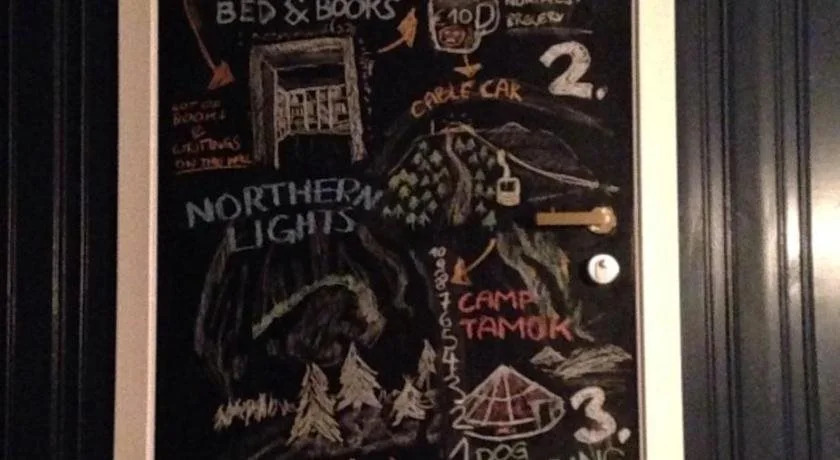 BED & BOOKS
€10
BREWERY
2.
CABLE CAR
LOT OF
BOOKS
&
WRITINGS
ON THE WALL
NORTHERN
LIGHTS
10
9
8
7
6
5
4
3
2
1
CAMP
TAMOK
3.
DOG